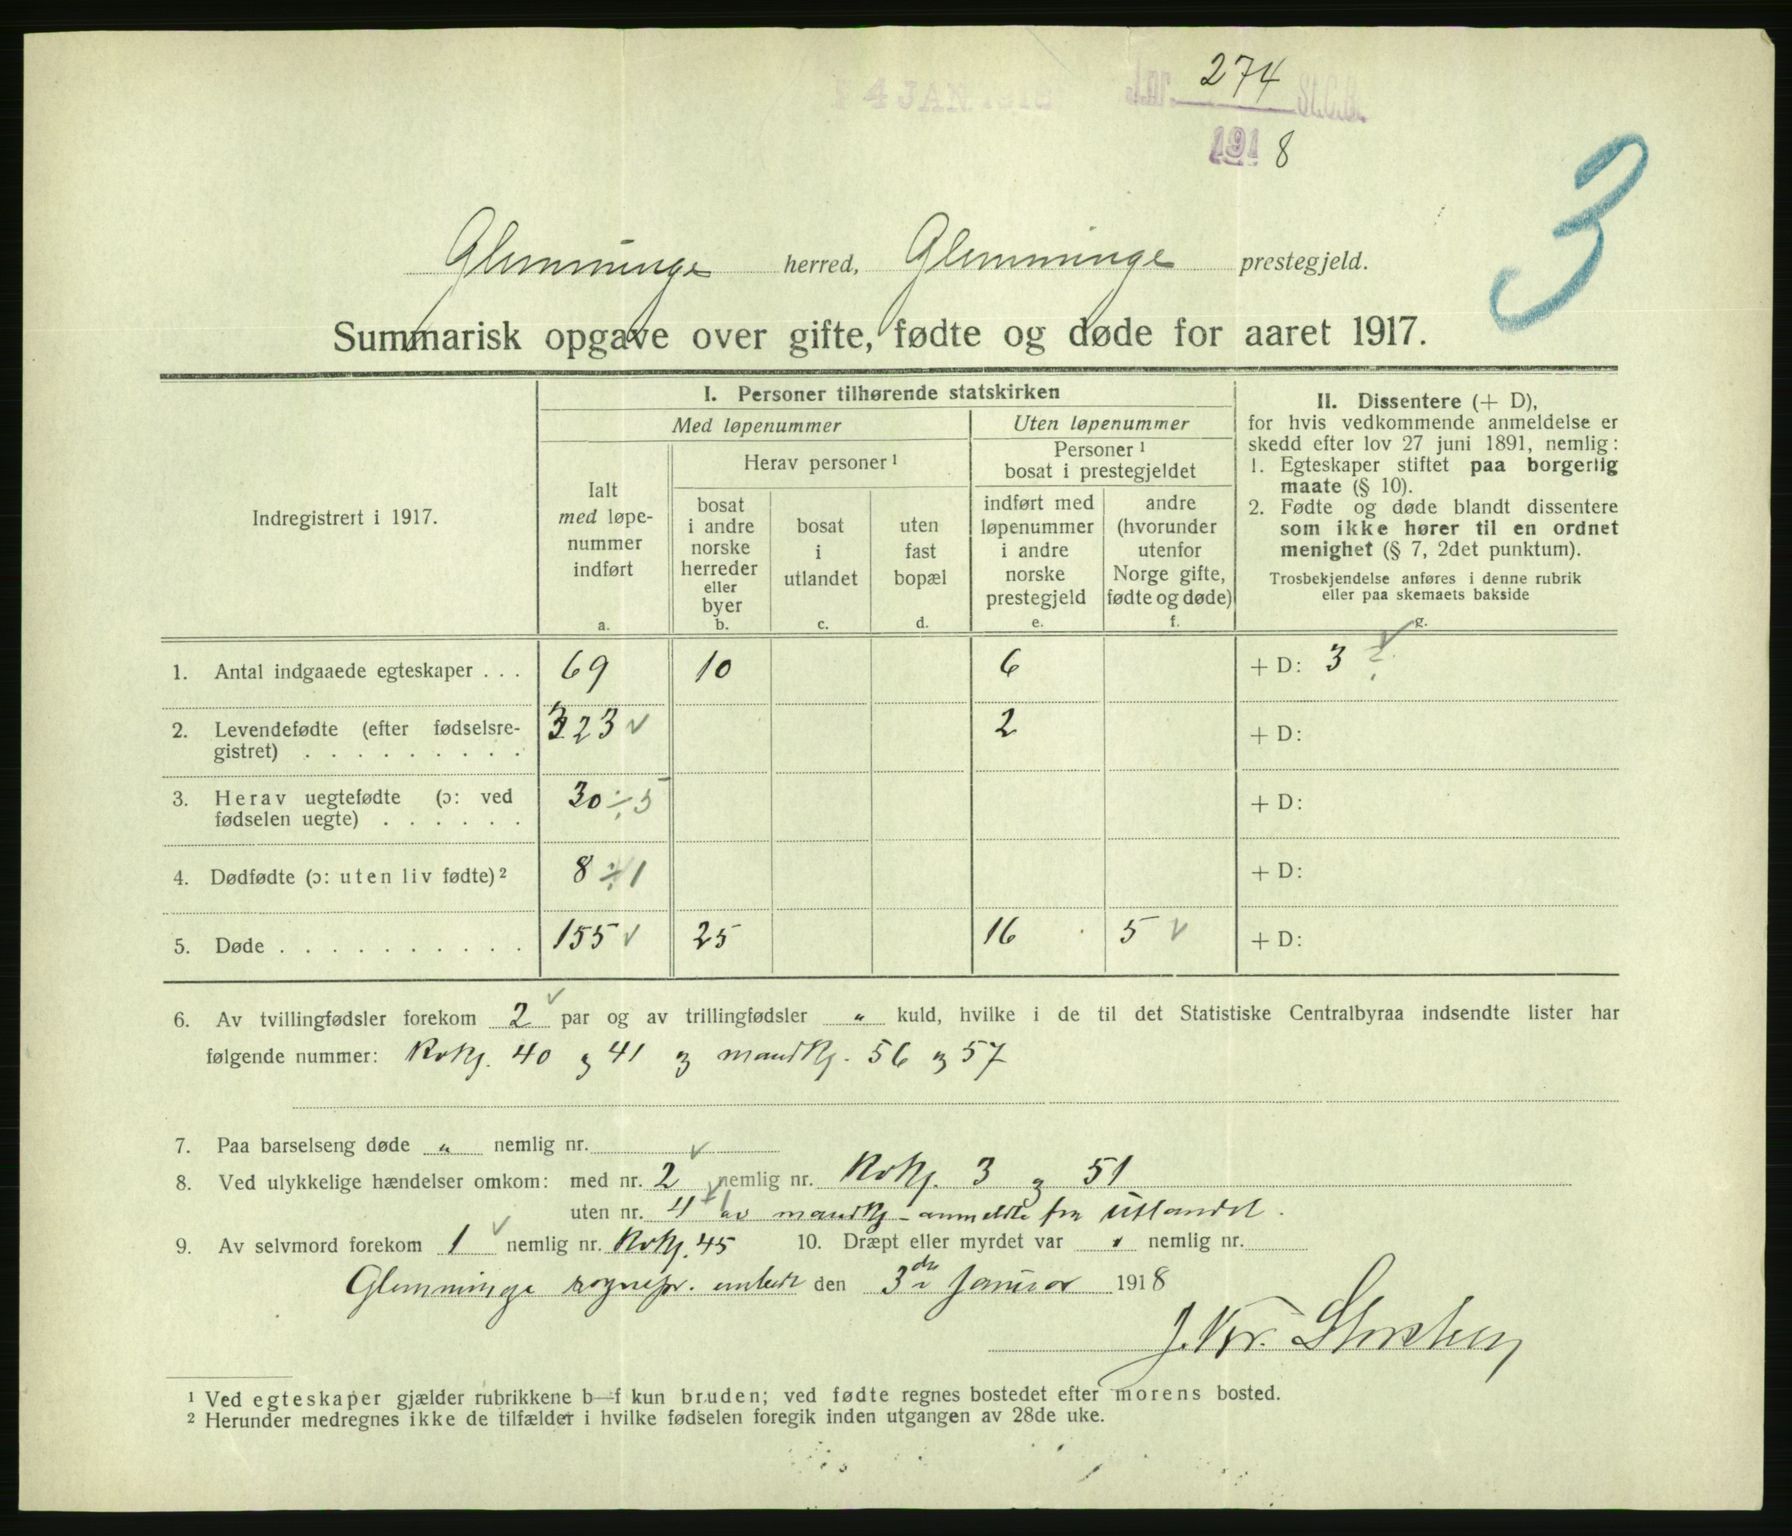 4 JAN 1918
J.nr. 274 St.C.B.
1918
3
Glemminge herred, Glemminge prestegjeld.
Summarisk opgave over gifte, fødte og døde for aaret 1917.
Indregistrert i 1917.
I. Personer tilhørende statskirken
Med løpenummer
Uten løpenummer
Ialt
med løpe-
nummer
indført
a.
Herav personer ¹
bosat
i andre
norske
herreder
eller
byer
b.
bosat
i
utlandet
c.
uten
fast
bopæl
d.
Personer ¹
bosat i prestegjeldet
indført med
løpenummer
i andre
norske
prestegjeld
e.
andre
(hvorunder
utenfor
Norge gifte,
fødte og døde)
f.
II. Dissentere (+ D),
for hvis vedkommende anmeldelse er
skedd efter lov 27 juni 1891, nemlig:
1. Egteskaper stiftet paa borgerlig
maate (§ 10).
2. Fødte og døde blandt dissentere
som ikke hører til en ordnet
menighet (§ 7, 2det punktum).
Trosbekjendelse anføres i denne rubrik
eller paa skemaets bakside
g.
1. Antal indgaaede egteskaper . . . 69 10 6 + D: 3 ?
2. Levendefødte (efter fødselsre-
gistret) . . . . . . . . . 323 ✓ 2 + D:
3. Herav uegtefødte (ɔ: ved
fødselen uegte) . . . . . . 30 ÷ 5 + D:
4. Dødfødte (ɔ: uten liv fødte) ² 8 ÷ 1 + D:
5. Døde . . . . . . . . . . 155 ✓ 25 16 5 ✓ + D:
6. Av tvillingfødsler forekom 2 ✓ par og av trillingfødsler „ kuld, hvilke i de til det Statistiske Centralbyraa indsendte lister har
følgende nummer: Kvkj. 40 og 41 og mandkj. 56 og 57
7. Paa barselseng døde „ nemlig nr.
8. Ved ulykkelige hændelser omkom: med nr. 2 ✓ nemlig nr. Kvkj. 3 og 51
uten nr. 4 av mandkj - anmeldte fra utlandet.
9. Av selvmord forekom 1 ✓ nemlig nr. Kvkj. 45 10. Dræpt eller myrdet var „ nemlig nr.
Glemminge sognepr. embede den 3die Januar 1918
J. Kr.
¹ Ved egteskaper gjælder rubrikkene b—f kun bruden; ved fødte regnes bostedet efter morens bosted.
² Herunder medregnes ikke de tilfælder i hvilke fødselen foregik inden utgangen av 28de uke.